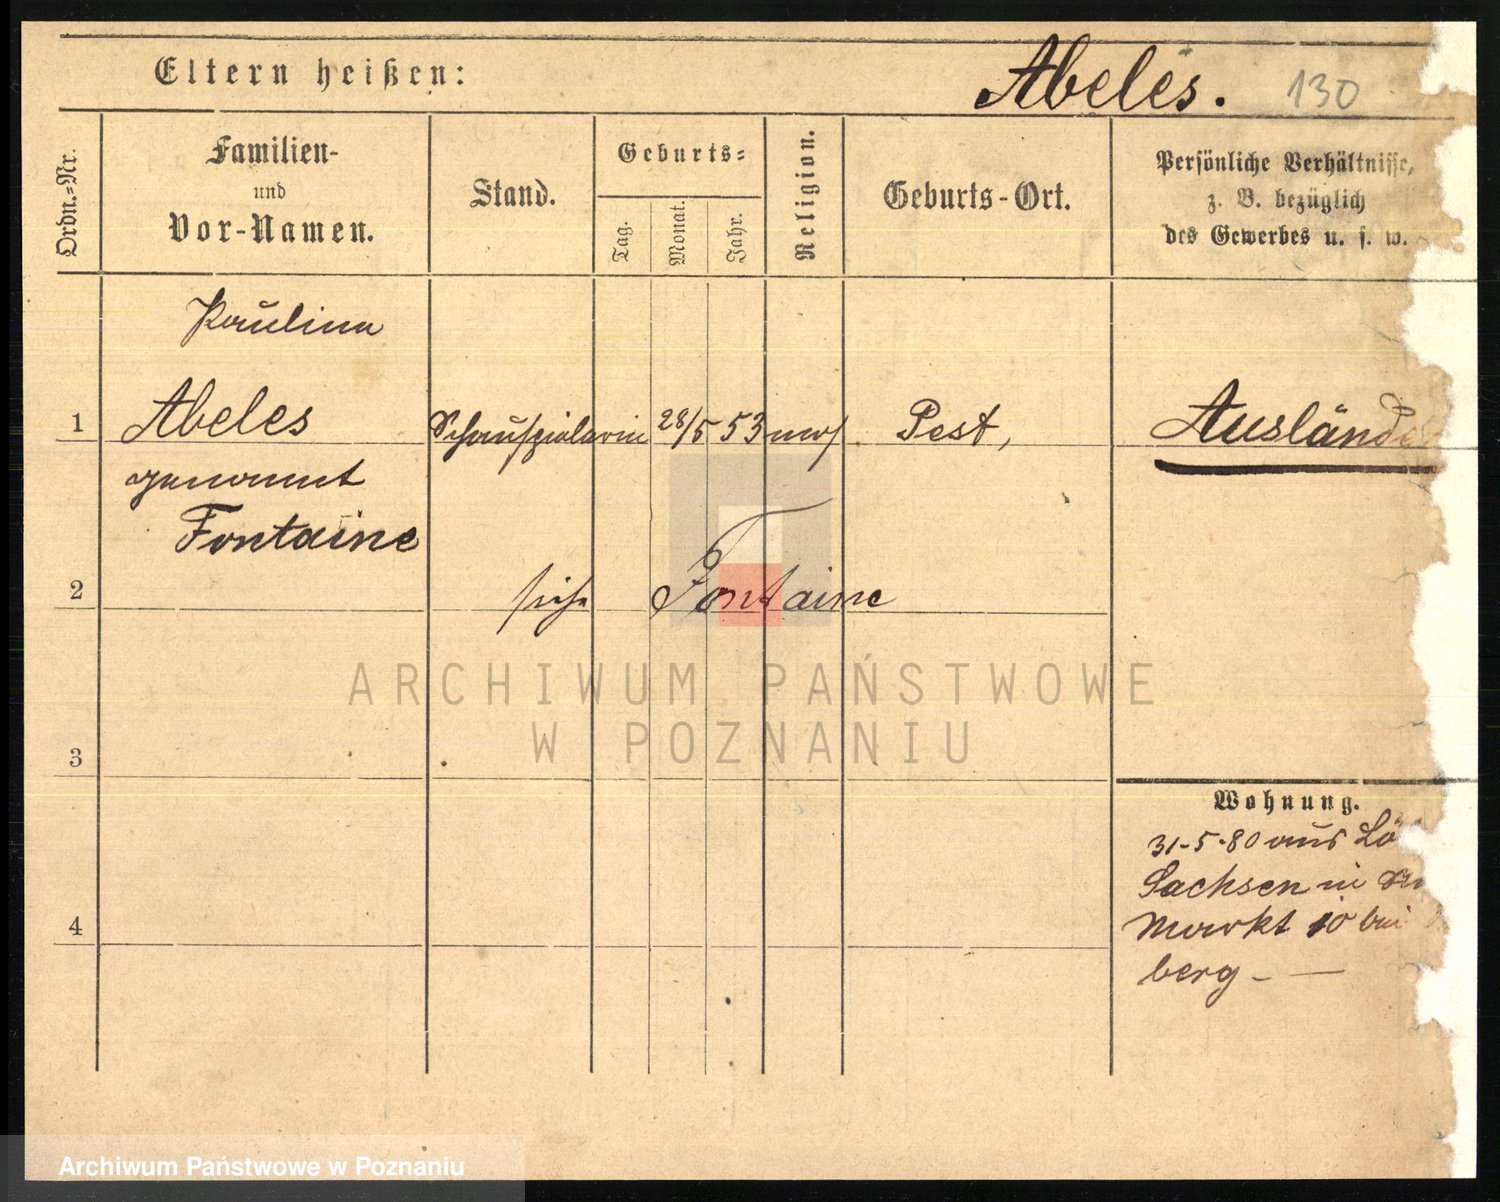 Eltern heißen:
Abeles. 130
Ordn.=Nr.
Familien-
und
Vor-Namen.
Stand.
Geburts=
Tag.
Monat.
Jahr.
Religion.
Geburts-Ort.
Persönliche Verhältnisse,
z. B. bezüglich
des Gewerbes u. s. w.
Pauline
1 Abeles Schauspielerin 28/5 53 mos. Pest, Ausländer
genannt
Fontaine
2 siehe Fontaine
ARCHIWUM PAŃSTWOWE
W POZNANIU
3
Wohnung.
31-5-80 aus Lö
Sachsen in
4 Markt 10 bei
berg -
Archiwum Państwowe w Poznaniu